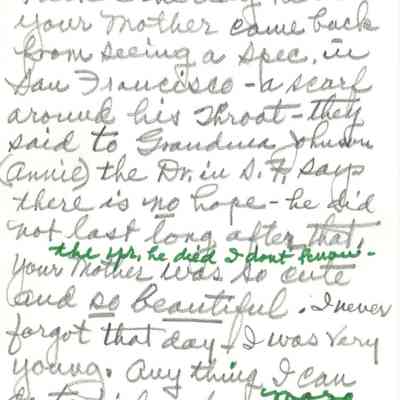 your Mother came back
from seeing a Spec, in
San Francisco - a scarf
around his Throat - they
said to Grandma Johnson
(Annie) the Dr. in S. F. says
there is no hope - he did
not last long after that,
the yr, he died I dont know -
your Mother was so cute
and so beautiful. I never
forgot that day - I was Very
young. Any thing I can
more